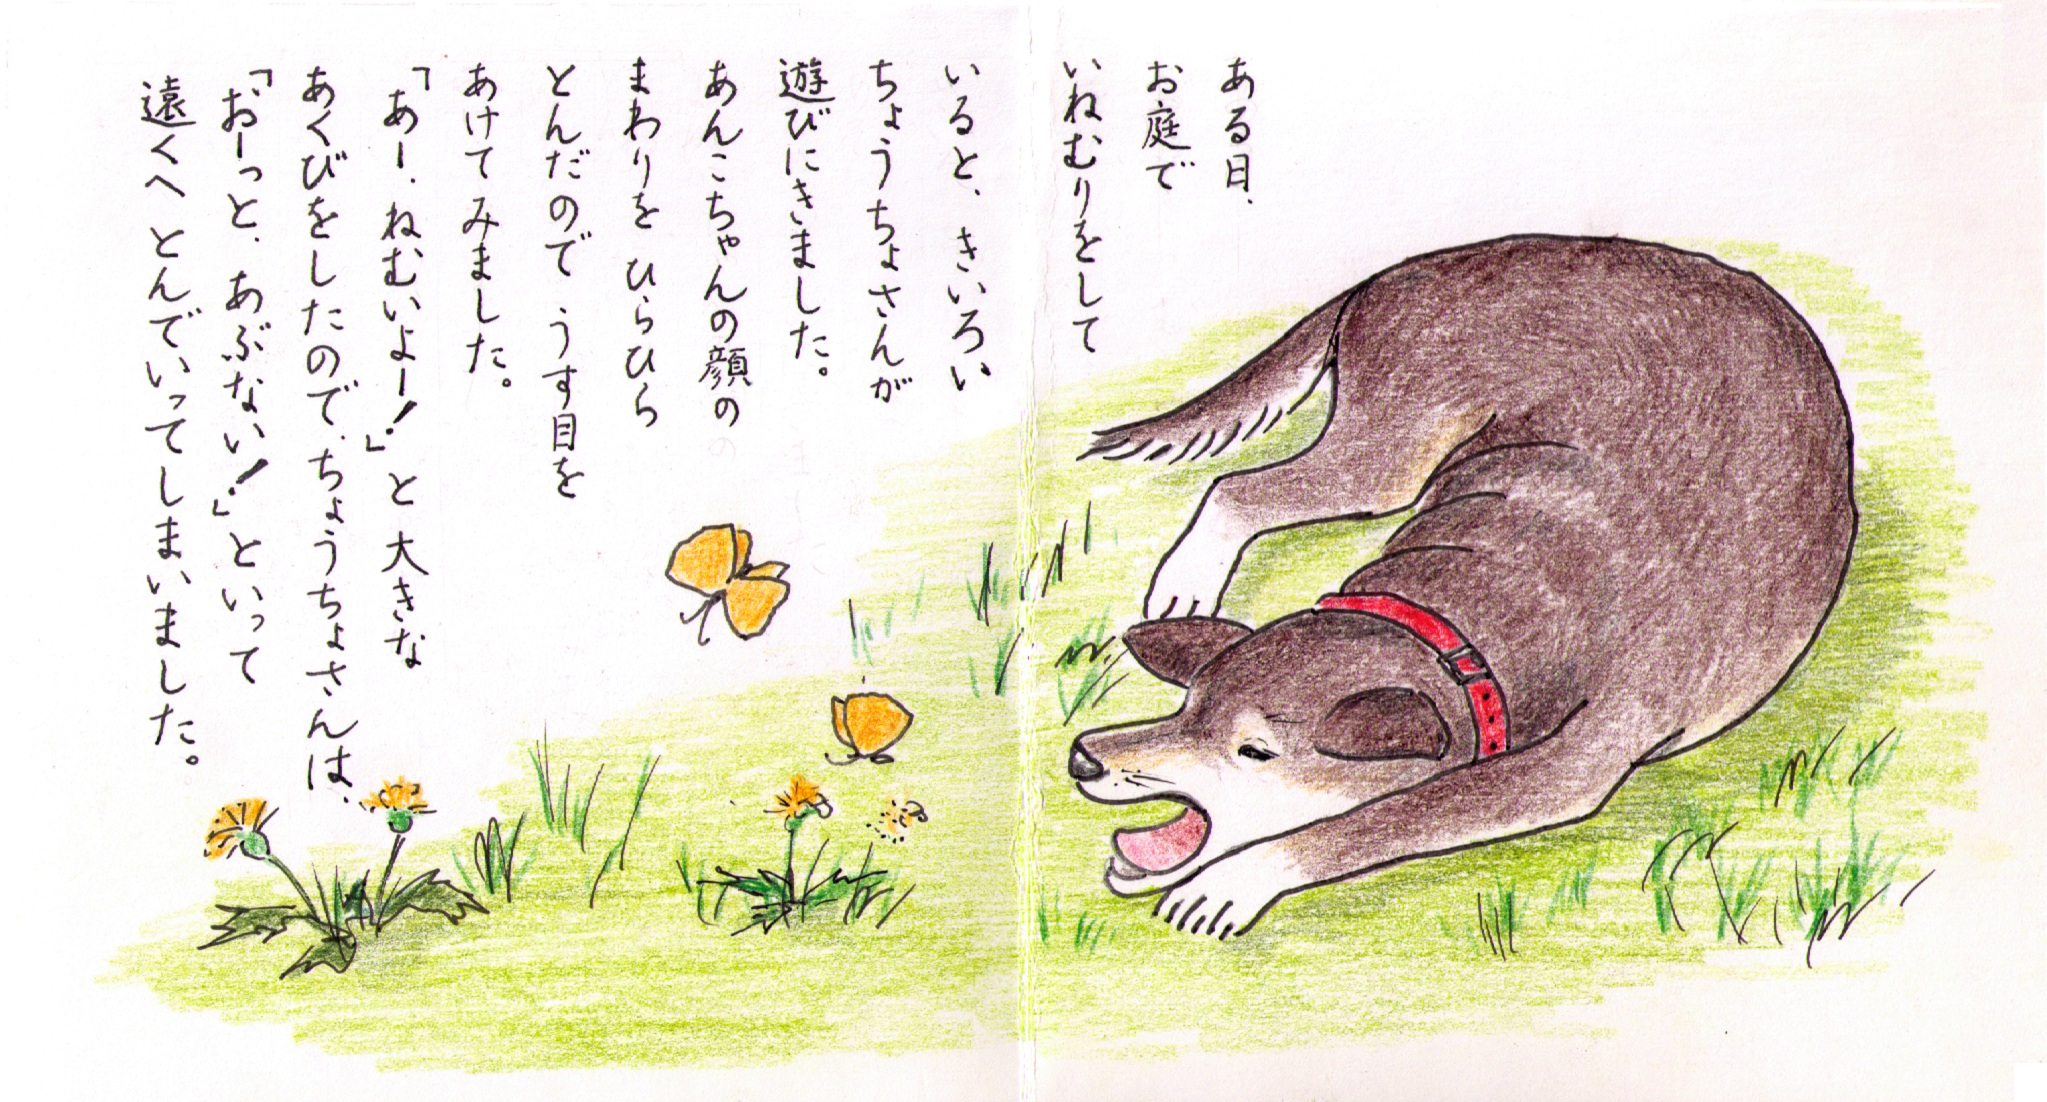 ある日、
お庭で
いねむりをして
いると、きいろい
ちょうちょさんが
遊びにきました。
あんこちゃんの顔の
まわりを ひらひら
とんだので うす目を
あけてみました。
「あー、ねむいよー!」と大きな
あくびをしたので、ちょうちょさんは、
「おーっと、あぶない!」といって
遠くへ とんでいってしまいました。